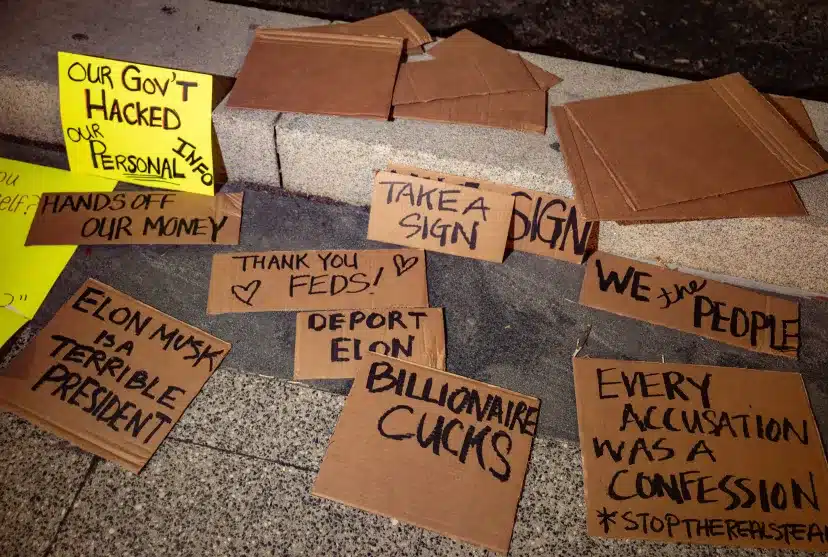 OUR GOV'T
HACKED
OUR
PERSONAL
INFO
HANDS OFF
OUR MONEY
TAKE A
SIGN
SIGN
THANK YOU
FEDS!
WE the
PEOPLE
DEPORT
ELON
ELON MUSK
IS A
TERRIBLE
PRESIDENT
BILLIONAIRE
CUCKS
EVERY
ACCUSATION
WAS A
CONFESSION
*STOPTHEREALSTEA